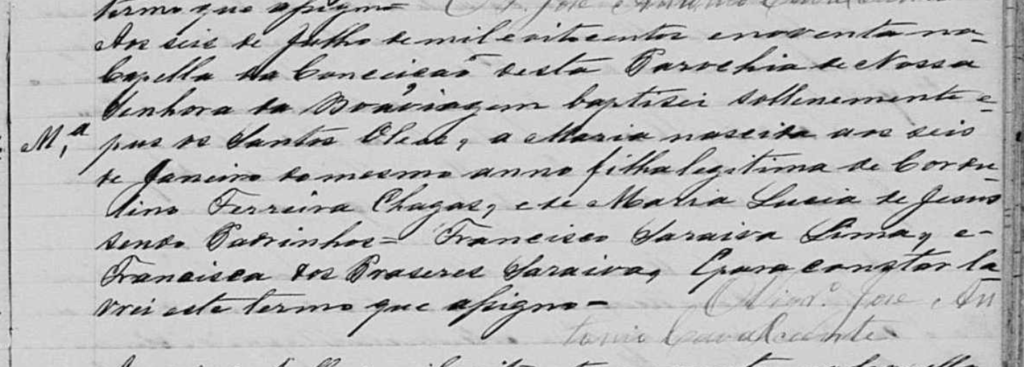 termo que assigno
Aos seis de Julho de mil e oitocentos e noventa na
Capella da Conceicaõ desta Parochia de Nossa
Senhora da Bôaviagem baptisei sollenemente e
M.ª pus os Santos Oleos, a Maria nascida aos seis
de Janeiro do mesmo anno filha legitima de Cordu-
lino Ferreira Chagas, e de Maria Lucia de Jesus
sendo Padrinhos = Francisco Saraiva Lima, e -
Francisca dos Praseres Saraiva, E para constar la
vrei este termo que assigno -
José An
tonio Cavalcante